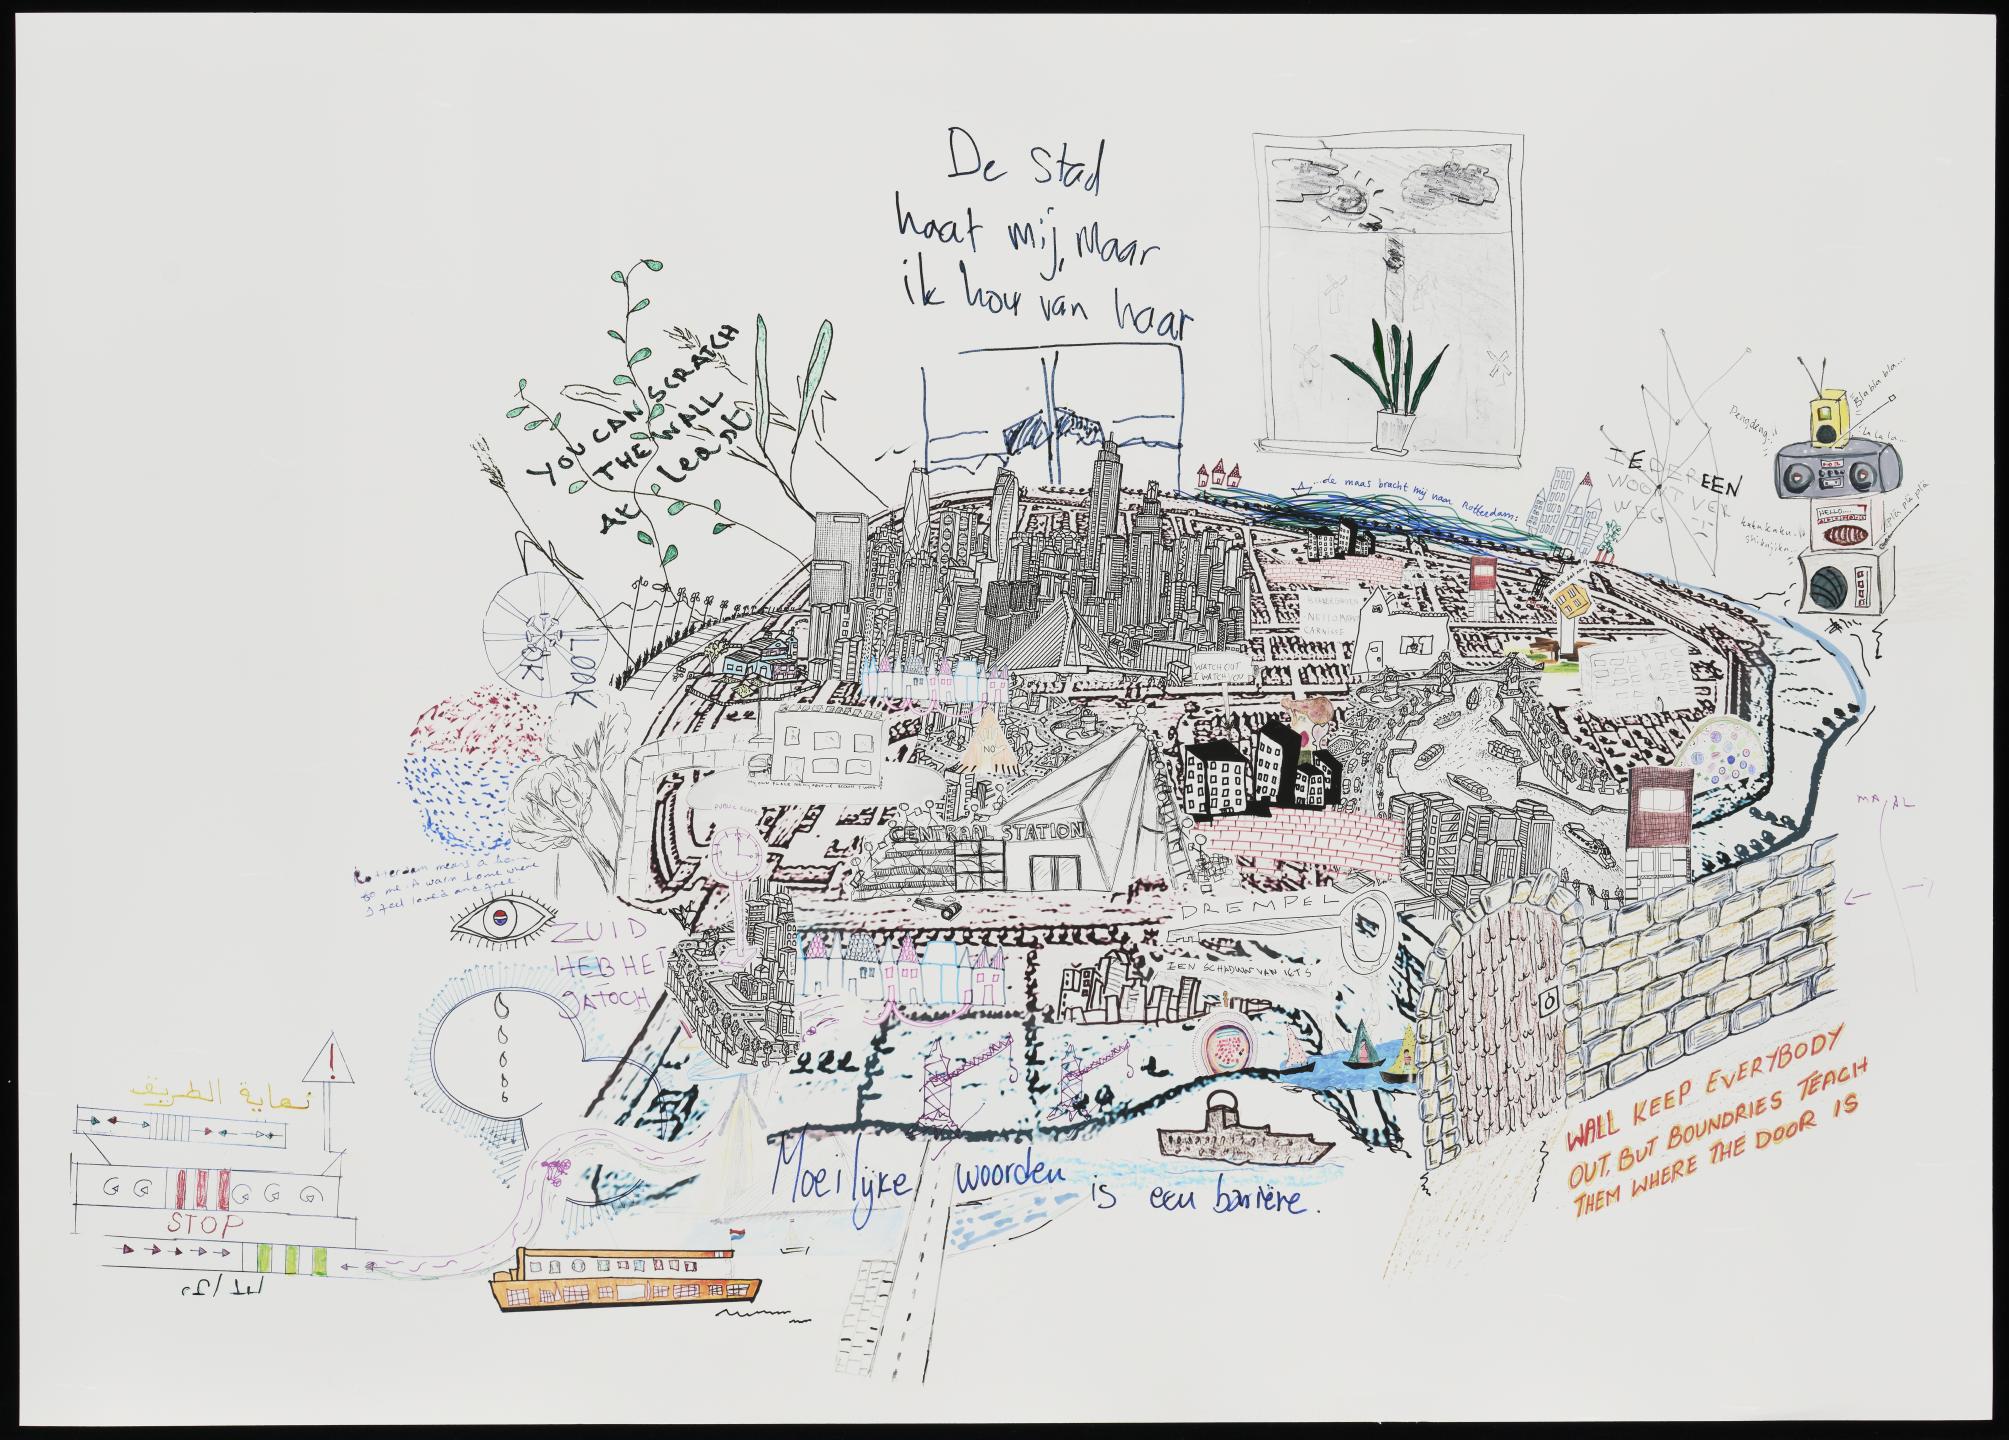 De stad
haat mij, maar
ik hou van haar
YOU CAN SCRATCH
THE WALL
At least
...de maas bracht mij naar Rotterdam:
IEDEREEN
WOONT VER
WEG
Bla bla bla...
Dengdeng..
La la la...
HELLO....
bla pla pla
LOOK
LOOK
BLOEMHOF
CARNISSE
WATCH OUT
I WATCH YOU
NO
PUBLIC
CENTRAAL STATION
MAAL
Rotterdam means a home
to me. A warm home where
I feel loved and free
ZUID
HEB HET
JATOCH
DREMPEL
EEN SCHADUW VAN IETS
نهاية الطريق
STOP
WALL KEEP EVERYBODY
OUT, BUT BOUNDRIES TEACH
THEM WHERE THE DOOR IS
Moeilijke woorden is een barrière.